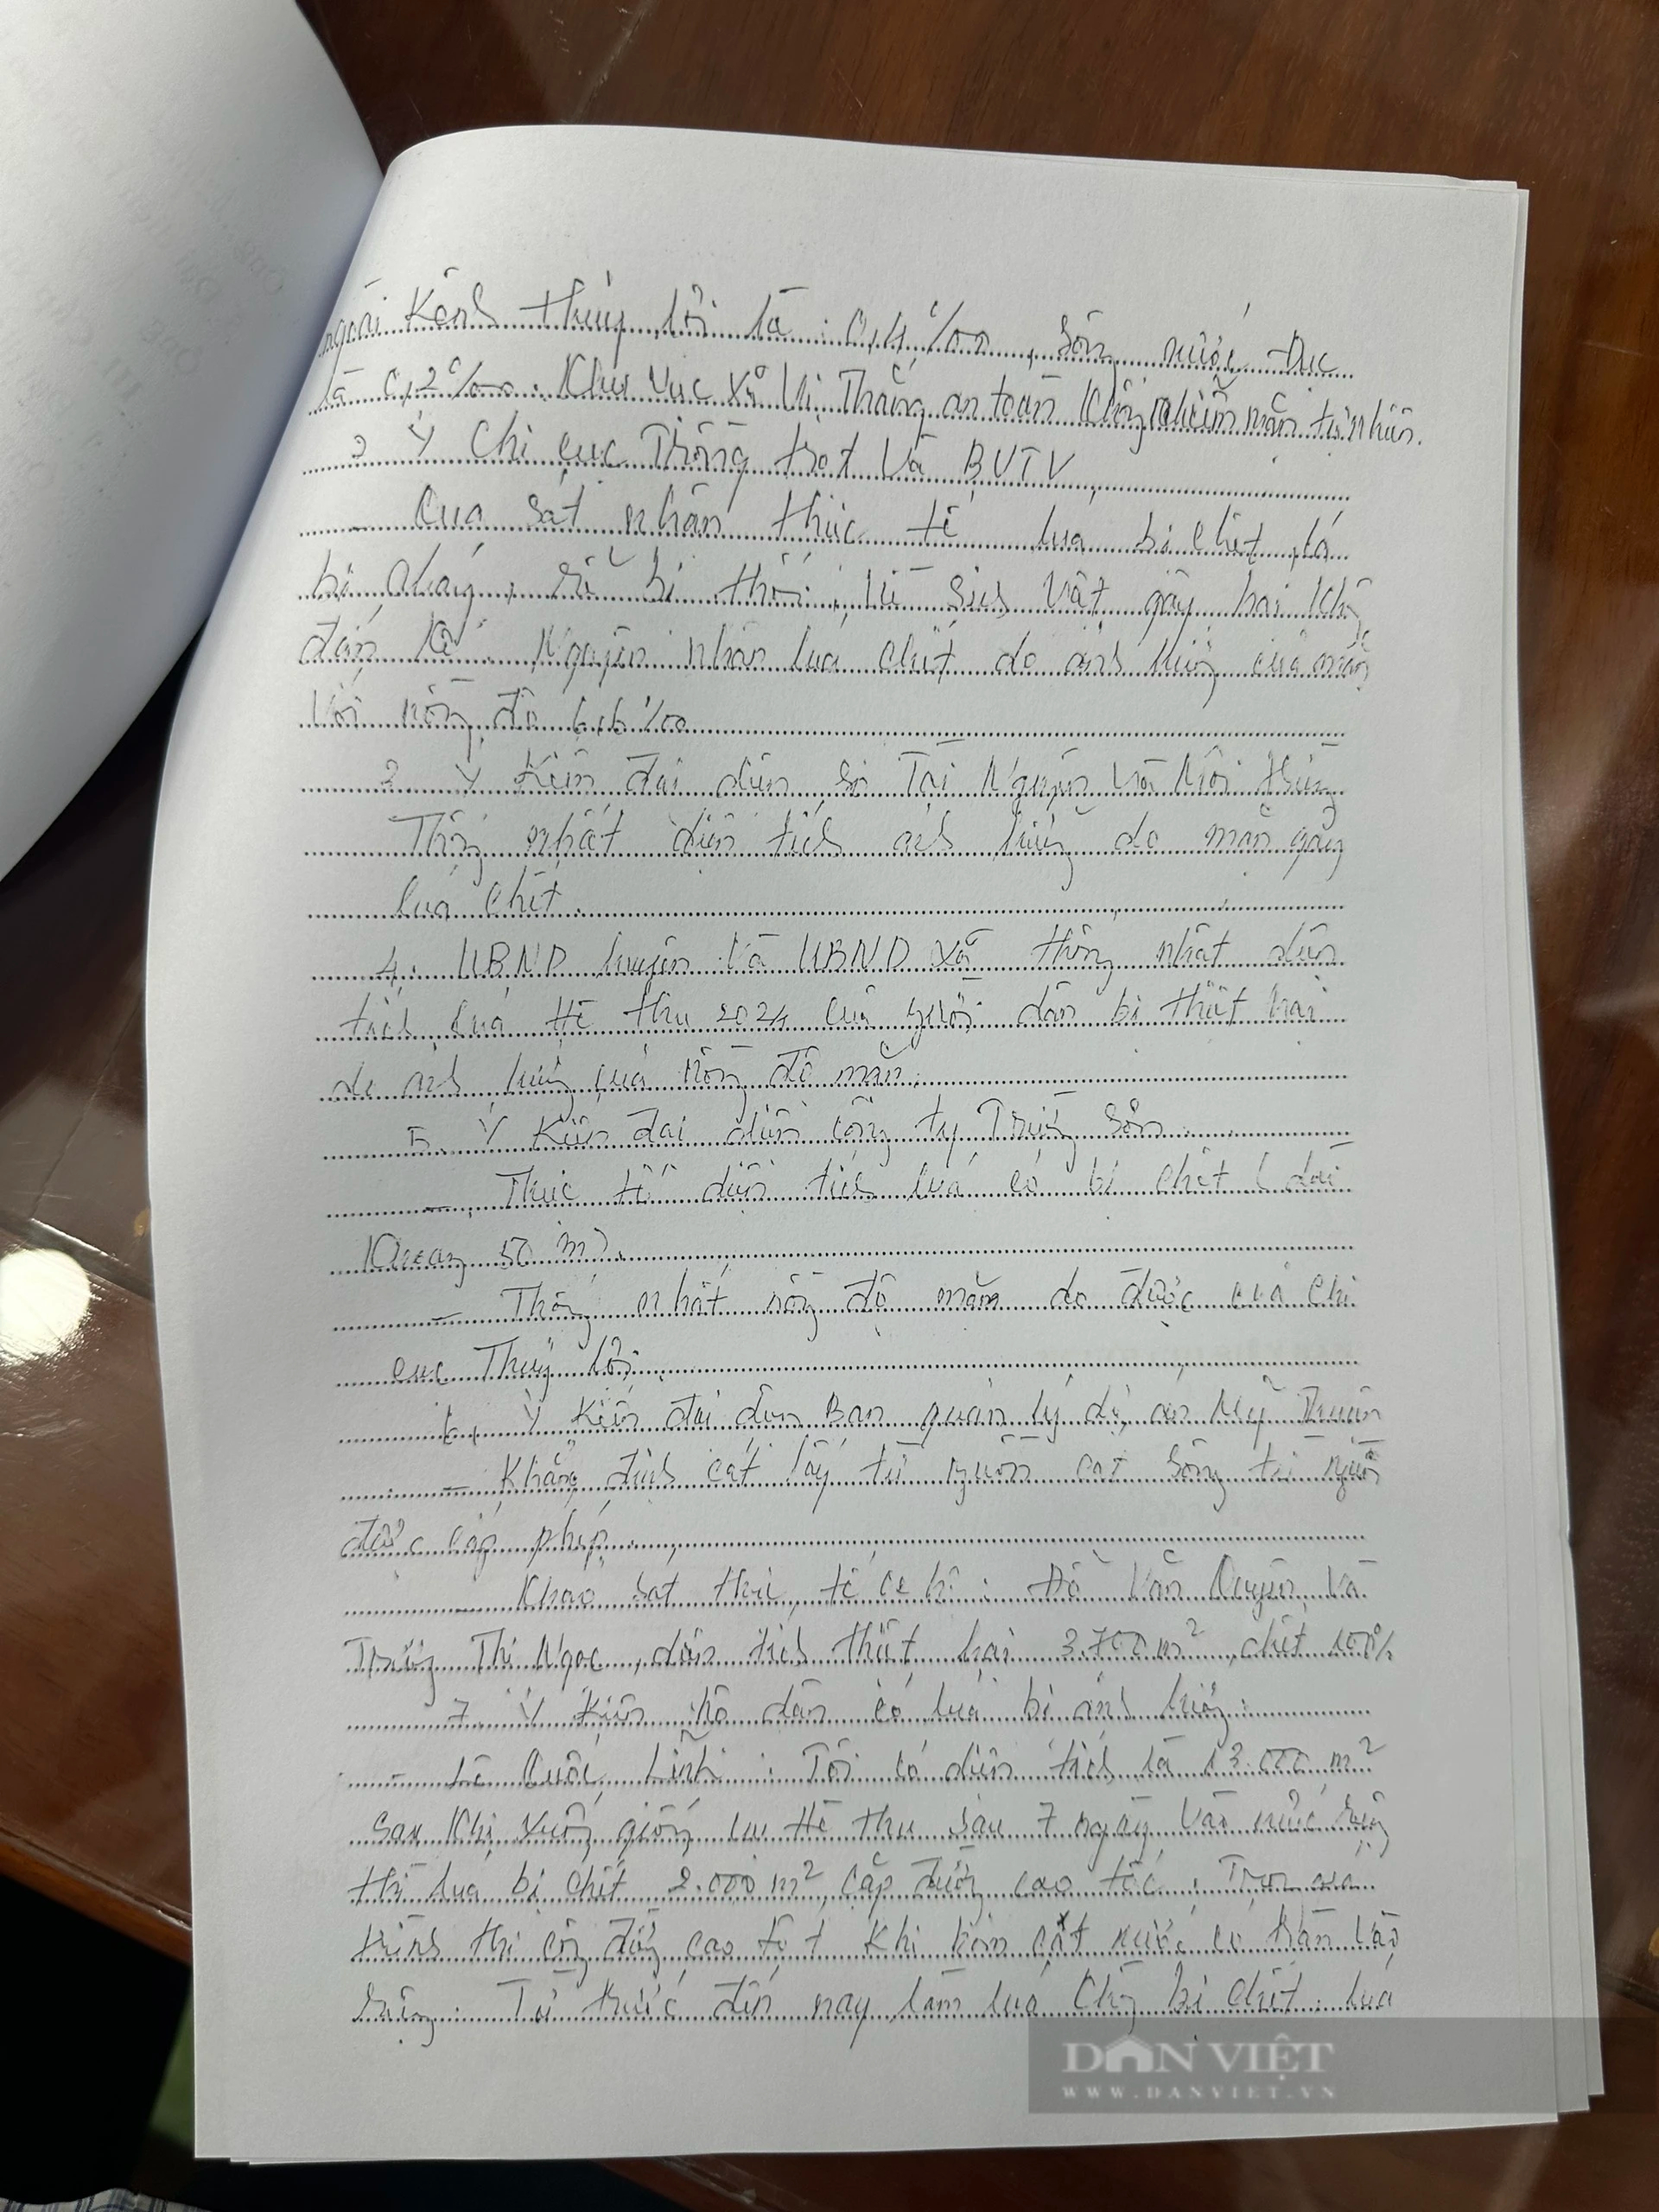 ngoài Kênh thủy lợi là : 0,4‰, Sông nước đục
là 0,2‰. Khu vực xã Vị Thắng an toàn không nhiễm mặn tự nhiên.
2 Ý Chi cục Trồng trọt Và BVTV
- Qua sát nhận thực tế lúa bị chết, lá
bị cháy, rễ bị thối, Vi Sinh Vật gây hại không
đáng kể. Nguyên nhân lúa chết do ảnh hưởng của mặn
Với nồng độ 6,6‰
3. Ý Kiến đại diện Sở Tài Nguyên Và Môi trường
Thống nhất diện tích ảnh hưởng do mặn gây
lúa chết.
4. UBND huyện Và UBND Xã thống nhất diện
tích lúa Hè thu 2024 của người dân bị thiệt hại
do ảnh hưởng của nồng độ mặn.
5. Ý Kiến đại diện công ty Trường Sơn
- Thực tế diện tích lúa có bị chết (dài
Khoảng 50 m).
- Thống nhất nồng độ mặn đo được của Chi
cục Thủy lợi
6. Ý Kiến đại diện Ban quản lý dự án Mỹ Thuận
- Khẳng định cát lấy từ nguồn cát Sông tại nguồn
được cấp phép
- Khảo sát thực tế có hộ : Đỗ Văn Quyền Và
Trương Thị Ngọc, diện tích thiệt hại 3.700 m², chết 100%
7. Ý Kiến hộ dân có lúa bị ảnh hưởng :
- Lê Quốc Lĩnh : Tôi có diện tích là 13.000 m²
Sau Khi xuống giống lúa Hè thu Sau 7 ngày Vào nước ruộng
thì lúa bị chết 2.000 m² cặp đường cao tốc. Trong quá
trình thi công đường cao tốc Khi bơm cát nước có tràn Vào
ruộng. Từ trước đến nay làm lúa Không bị chết. lúa
DÂN VIỆT
WWW.DANVIET.VN